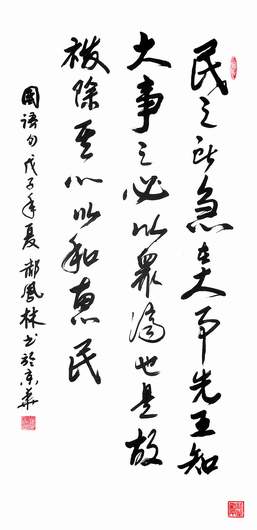 民之所急在大事先王知
大事之必以衆濟也是故
祓除其心以和惠民
國語句戊子年夏郝鳳林书於京華